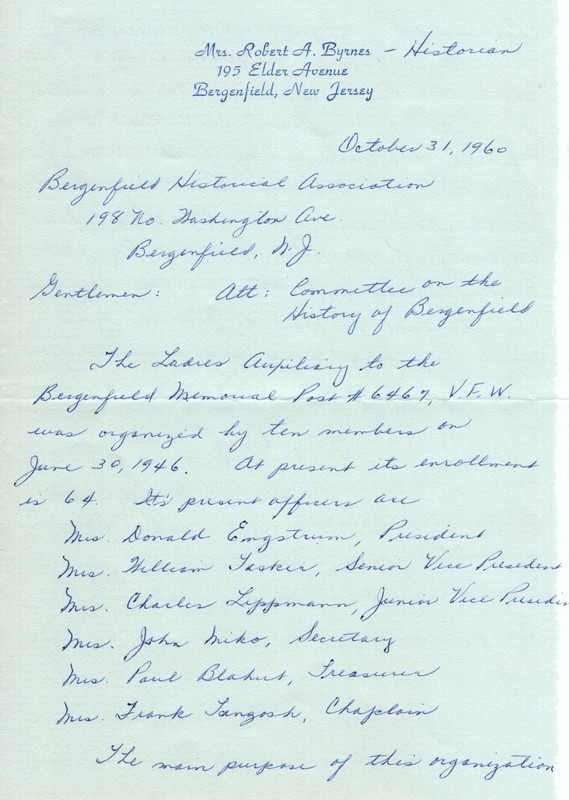 Mrs. Robert A. Byrnes - Historian
195 Elder Avenue
Bergenfield, New Jersey
October 31, 1960
Bergenfield Historical Association
198 No. Washington Ave.
Bergenfield, N.J.
Gentlemen: Att: Committee on the
History of Bergenfield
The Ladies Auxiliary to the
Bergenfield Memorial Post # 6467, V.F.W.
was organized by ten members on
June 30, 1946. At present its enrollment
is 64. It's present officers are
Mrs. Donald Engstrum, President
Mrs. William Tasker, Senior Vice President
Mrs. Charles Lippmann, Junior Vice Presid
Mrs. John Miko, Secretary
Mrs. Paul Blahut, Treasurer
Mrs. Frank Tangosh, Chaplain
The main purpose of this organization